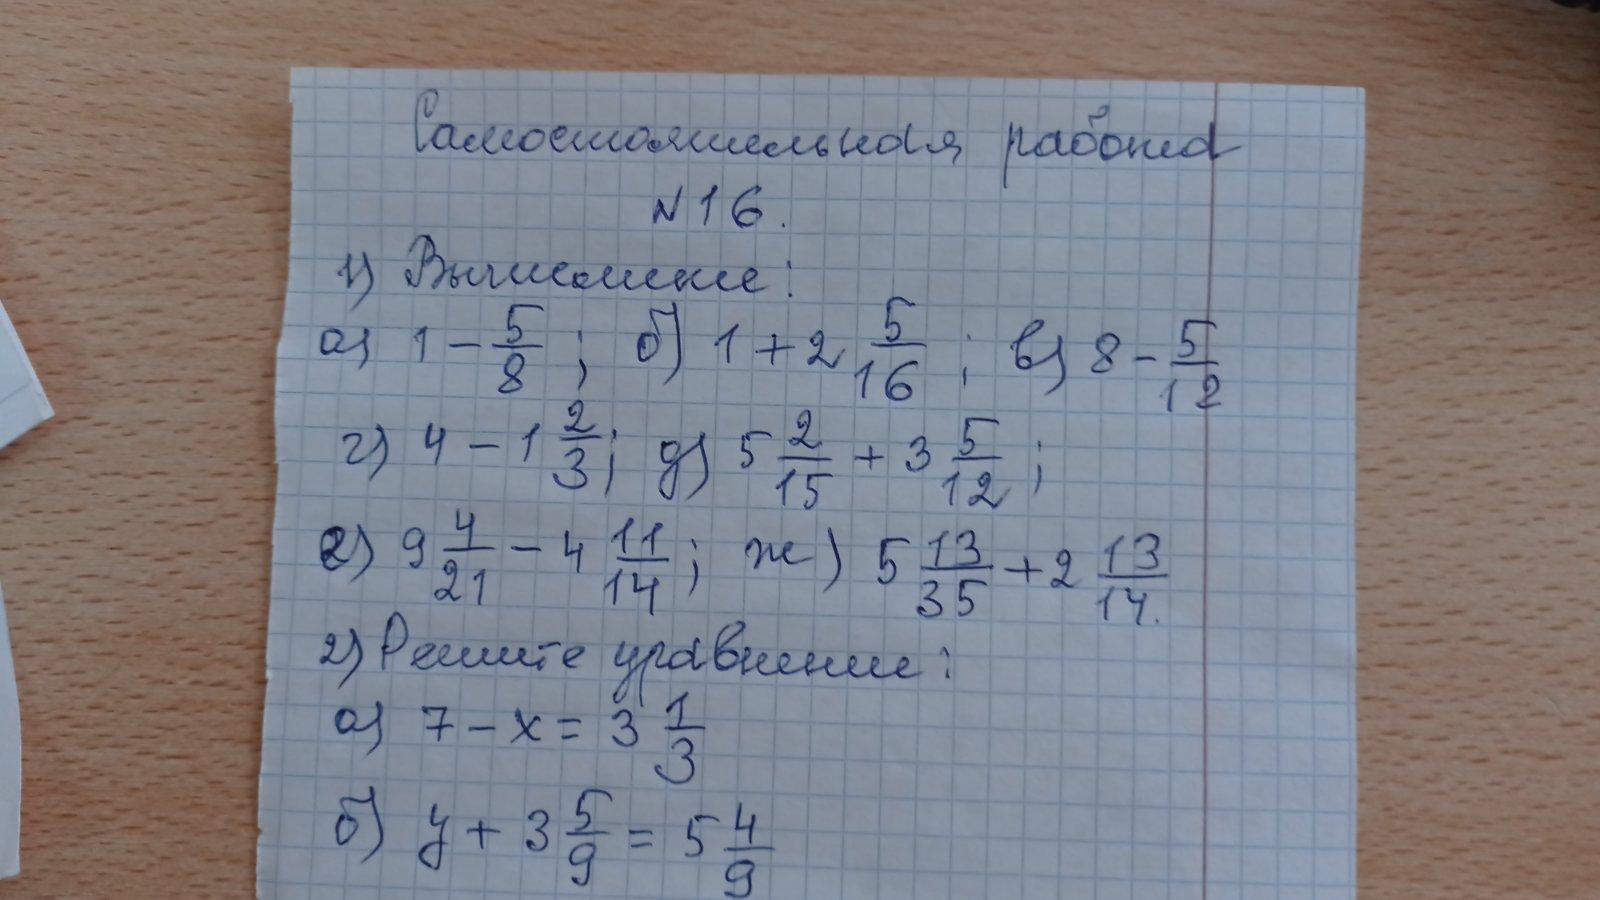 Самостоятельная работа
№16.
1) Вычислите:
а) 1 - 5/8 ; б) 1 + 2 5/16 ; в) 8 - 5/12
г) 4 - 1 2/3 ; д) 5 2/15 + 3 5/12 ;
е) 9 4/21 - 4 11/14 ; ж) 5 13/35 + 2 13/14.
2) Решите уравнение:
а) 7 - x = 3 1/3
б) y + 3 5/9 = 5 4/9